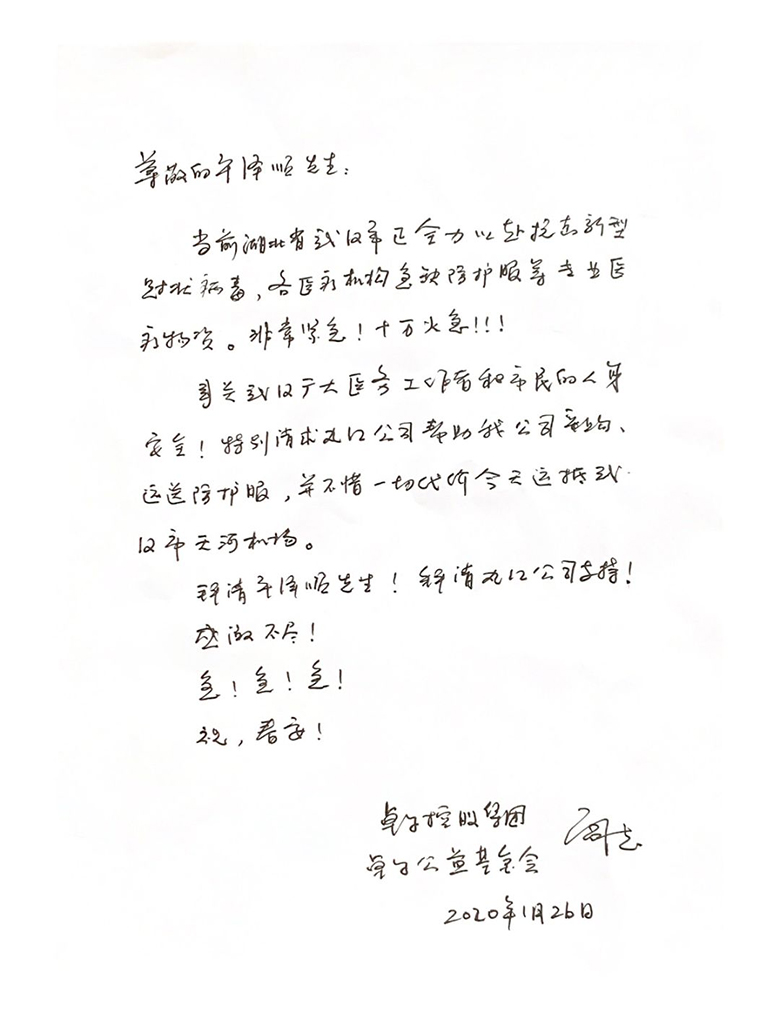 尊敬的午泽顺先生：
当前湖北省武汉市正全力以赴抗击新型
冠状病毒，各医疗机构急缺防护服等专业医
疗物资。非常紧急！十万火急！！！
事关武汉广大医务工作者和市民的人身
安全！特别请求九江公司帮助我公司采购、
运送防护服，并不惜一切代价今天运抵武
汉市天河机场。
拜请午泽顺先生！拜请九江公司支持！
感激不尽！
急！急！急！
祝，春安！
卓尔控股集团
阎志
卓尔公益基金会
2020年1月26日